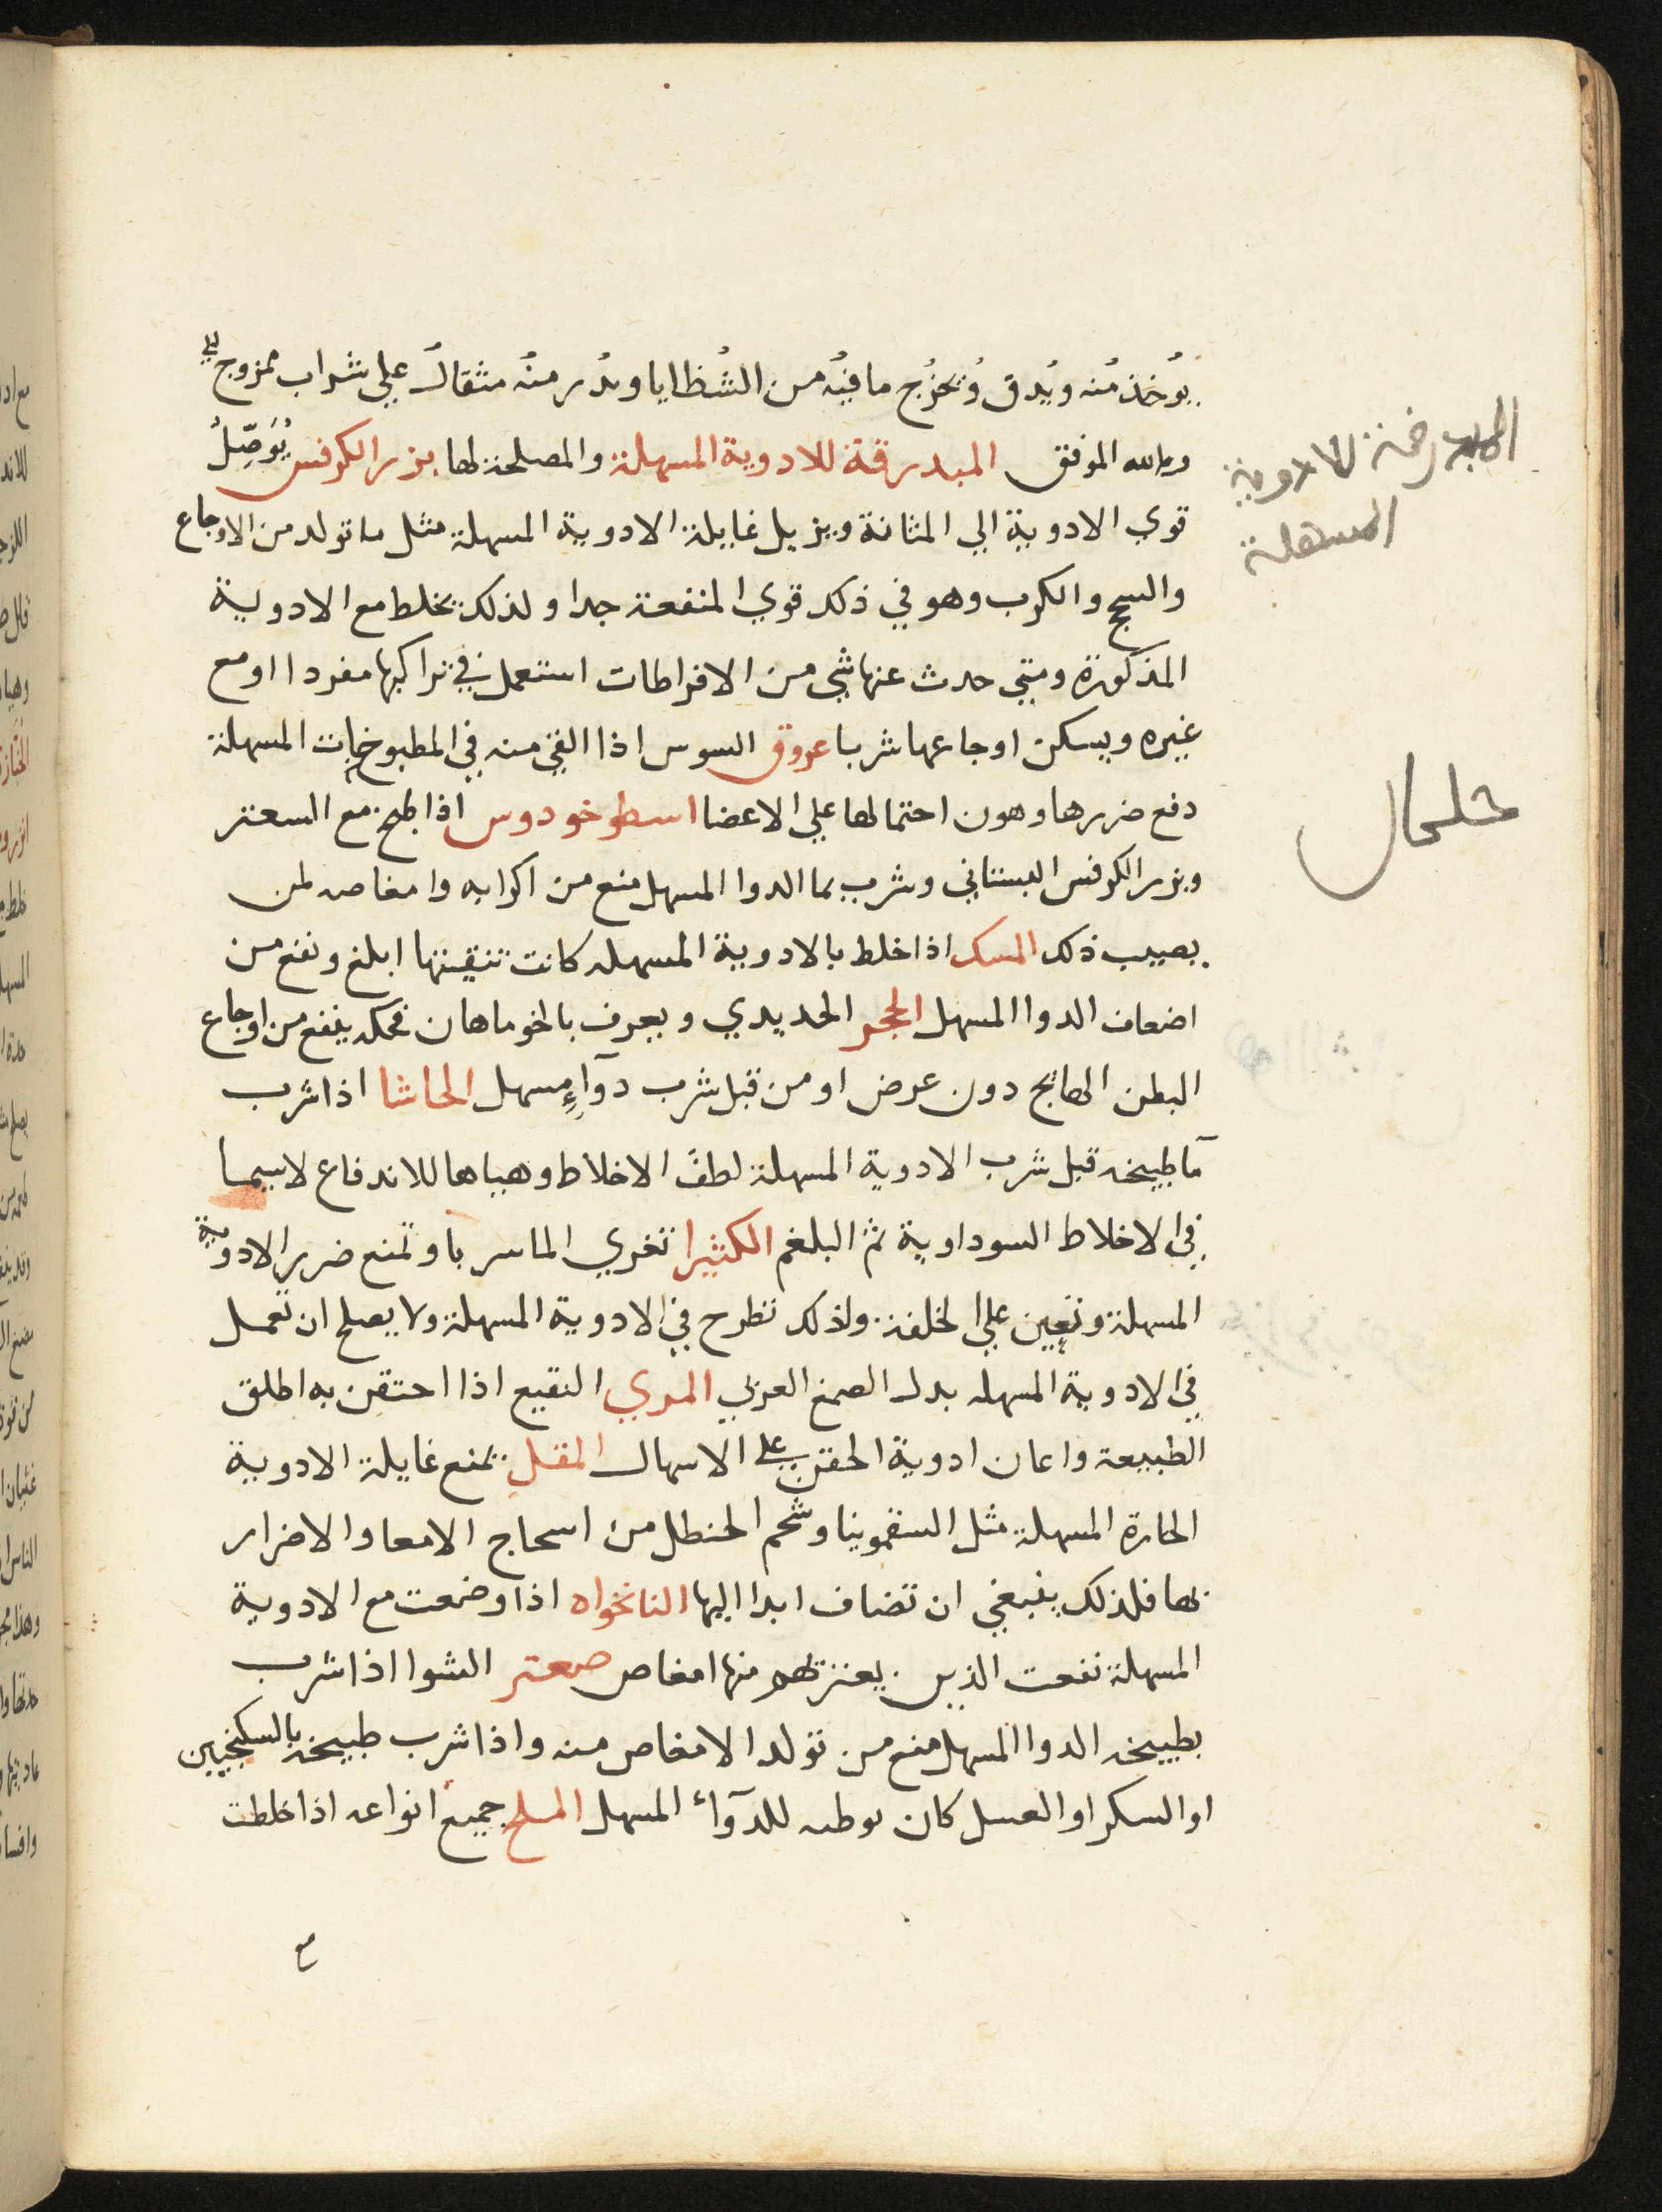 يؤخذ منه ويدق ويخرج ما فيه من الشظايا ويذر منه مثقال علي شراب ممزوج
وبالله الموفق المبدرقة للادوية المسهلة والمصلحة لها بزر الكرفس يوصل
قوي الادوية الي المثانة ويزيل غايلة الادوية المسهلة مثل ما تولد من الاوجاع
والسحج والكرب وهو في ذلك قوي المنفعة جدا ولذلك يخلط مع الادوية
المذكورة ومتي حدث عنها شي من الافراطات استعمل في تراكبها مفردا او مع
غيره ويسكن اوجاعها شربا عروق السوس اذا القي منه في المطبوخات المسهلة
دفع ضررها وهون احتمالها علي الاعضا اسطوخودوس اذا طبخ مع السعتر
وبزر الكرفس البستاني وشرب بما الدوا المسهل منع من اكرابه وامغاصه لمن
يصيب ذلك المسك اذا خلط بالادوية المسهله كانت تنقيتها ابلغ ونفع من
اضعاف الدوا المسهل الحجر الحديدي ويعرف بالخوماهان محكه ينفع من اوجاع
البطن الهايج دون عرض او من قبل شرب دوآءٍ مسهل الحاشا اذا شرب
مآ طبيخه قبل شرب الادوية المسهلة لطف الاخلاط وهياها للاندفاع لاسيما
في الاخلاط السوداوية ثم البلغم الكثيرا تغري الماسربا وتمنع ضرر الادوية
المسهلة وتعين علي الخلفة ولذلك تطرح في الادوية المسهلة ولا يصلح ان تعمل
في الادوية المسهله بدل الصمغ العربي المري النقيع اذا احتقن به اطلق
الطبيعة واعان ادوية الحقن علي الاسهال المقل يمنع غايلة الادوية
الحارة المسهلة مثل السقمونيا وشحم الحنطل من اسحاج الامعا والاضرار
بها فلذلك ينبغي ان تضاف ابدا اليها النانخواه اذا وضعت مع الادوية
المسهلة نفعت الذين يعتريهم منها امغاص صعتر الشوا اذا شرب
بطبيخه الدوا المسهل منع من تولد الامغاص منه واذا شرب طبيخه بالسكنجبين
او السكر او العسل كان توطيه للدوآء المسهل الملح جميع انواعه اذا خلطت
مع
المبدرقة للادوية
المسهلة